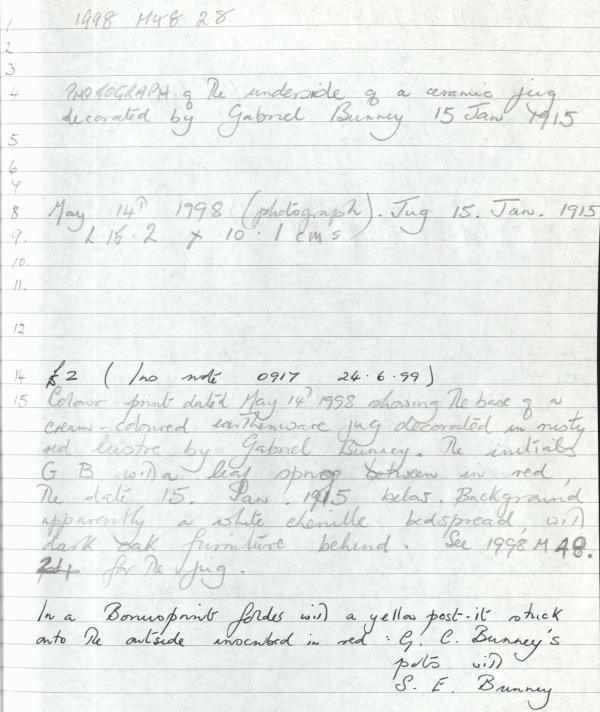 1 1998 M48 28
2
3
4 PHOTOGRAPH of the underside of a ceramic jug
decorated by Gabriel Bunney 15 Jan 1915
5
6
7
8 May 14th 1998 (photograph). Jug 15. Jan. 1915
9. L 15.2 x 10.1 cms
10.
11.
12
14 £2 (Ins note 0917 24.6.99)
15 Colour print dated May 14th 1998 showing the base of a
cream-coloured earthenware jug decorated in rusty
red lustre by Gabriel Bunney. The initials
G B with a leaf sprog between in red,
The date 15. Jan. 1915 below. Background
apparently a white chenille bedspread, with
dark oak furniture behind. See 1998 M 48.
for the jug.
In a Bonusprint folder with a yellow post-it stuck
onto the outside inscribed in red: G. C. Bunney's
pots with
S. E. Bunney